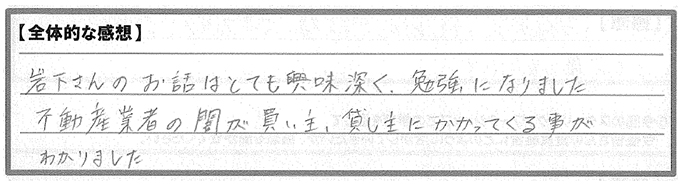 【全体的な感想】
岩下さんのお話はとても興味深く、勉強になりました
不動産業者の闇が買い主、貸し主にかかってくる事が
わかりました